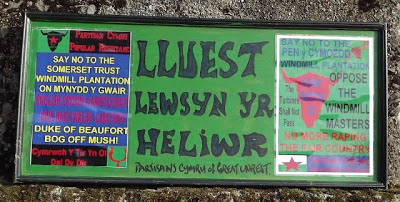 Partisan Cymru
Popular Resistance
SAY NO TO THE
SOMERSET TRUST
WINDMILL PLANTATION
ON MYNYDD Y GWAIR
DUKE OF BEAUFORT
BOG OFF MUSH!
Cymrwch Y Tir Yn Ol
Gai Dy Dir
LLUEST
LEWSYN YR
HELIWR
PARTISANS CYMRU OF GREAT UNREST
SAY NO TO THE
PEN y CYMOEDD
WINDMILL PLANTATION
The
Turbines
Shall Not
Pass
OPPOSE
THE
WINDMILL
MASTERS
NO MORE RAPING
THE FAIR COUNTRY